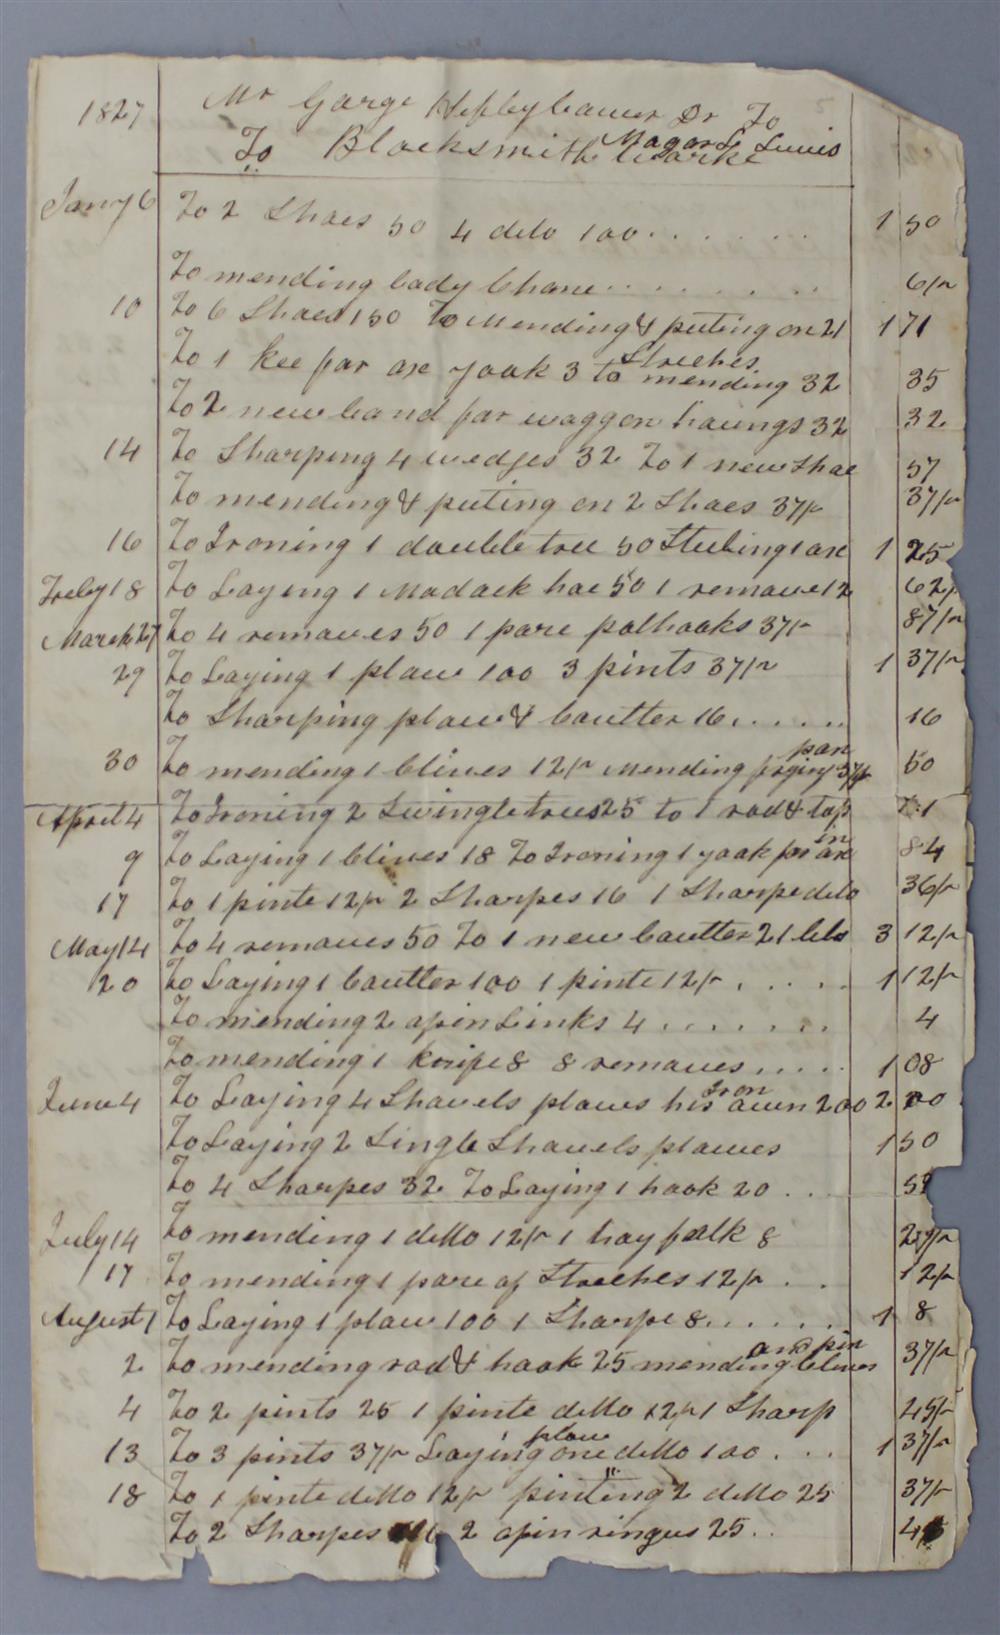 1827 Mr Garge Hefleybawer Dr To
Magar L Lewis
To Blacksmith Warke
Jany 6 To 2 Shaes 50 4 deto 100 . . . . . . 1 50
To mending bady Chane . . . . . . . . 6/2
10 To 6 Shaes 150 To Mending & puting on 21 1 71
Streches
To 1 kee far ox yoak 3 to mending 32 35
To 2 new band far waggon haungs 32 32
14 To Sharping 4 wedges 32 To 1 new Shae 57
To mending & puting on 2 Shaes 37/2 37/2
16 To Ironing 1 double tree 50 Steeling 1 axe 1 25
Feby 18 To Laying 1 Madack hae 50 1 remave 12 62/2
March 27 To 4 remaves 50 1 pare pathaaks 37/2 87/2
29 To Laying 1 plaw 100 3 pints 37/2 1 37/2
To Sharping plaw & Cautter 16 . . . . . 16
pan
30 To mending 1 Clives 12/2 Mending frying 37/2 50
April 4 To Ironing 2 Swingletrees 25 to 1 rad & tap
in
9 To Laying 1 Clives 18 To Ironing 1 yoak far axe 84
17 To 1 pinte 12/2 2 Sharpes 16 1 Sharpe deto 36/2
May 14 To 4 remaves 50 To 1 new Cautter 21 3 12/2
20 To Laying 1 Cautter 100 1 pinte 12/2 . . . . . 1 12/2
To mending 2 apin Links 4 . . . . . . . 4
To mending 1 8 8 remaves . . . . . 1 08
Iron
June 4 To Laying 4 Shavels plaws his awn 200 2 00
To Laying 2 Single Shavels plawes 1 50
To 4 Sharpes 32 To Laying 1 haak 20 . . . 52
July 14 To mending 1 ditto 12/2 1 hay falk 8
17 To mending 1 pare of Streches 12/2 . . 12/2
August 1 To Laying 1 plaw 100 1 Sharpe 8 . . . . . . 1 8
and pin
2 To mending rad & haak 25 mending Clives 37/2
4 To 2 pints 25 1 pinte ditto 12/2 1 Sharp 45/2
plaw
13 To 3 pints 37/2 Laying one ditto 100 . . . 1 37/2
18 To 1 pinte ditto 12/2 pinting 2 ditto 25 37/2
To 2 Sharpes 16 2 apin ringus 25 . .